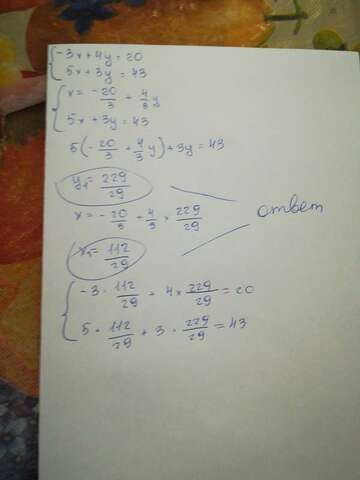 -3x + 4y = 20
5x + 3y = 43
x = -20/3 + 4/3 y
5x + 3y = 43
5(-20/3 + 4/3 y) + 3y = 43
y₁ = 229/29
x = -20/3 + 4/3 × 229/29
ответ
x₁ = 112/29
-3 · 112/29 + 4 × 229/29 = 20
5 · 112/29 + 3 · 229/29 = 43